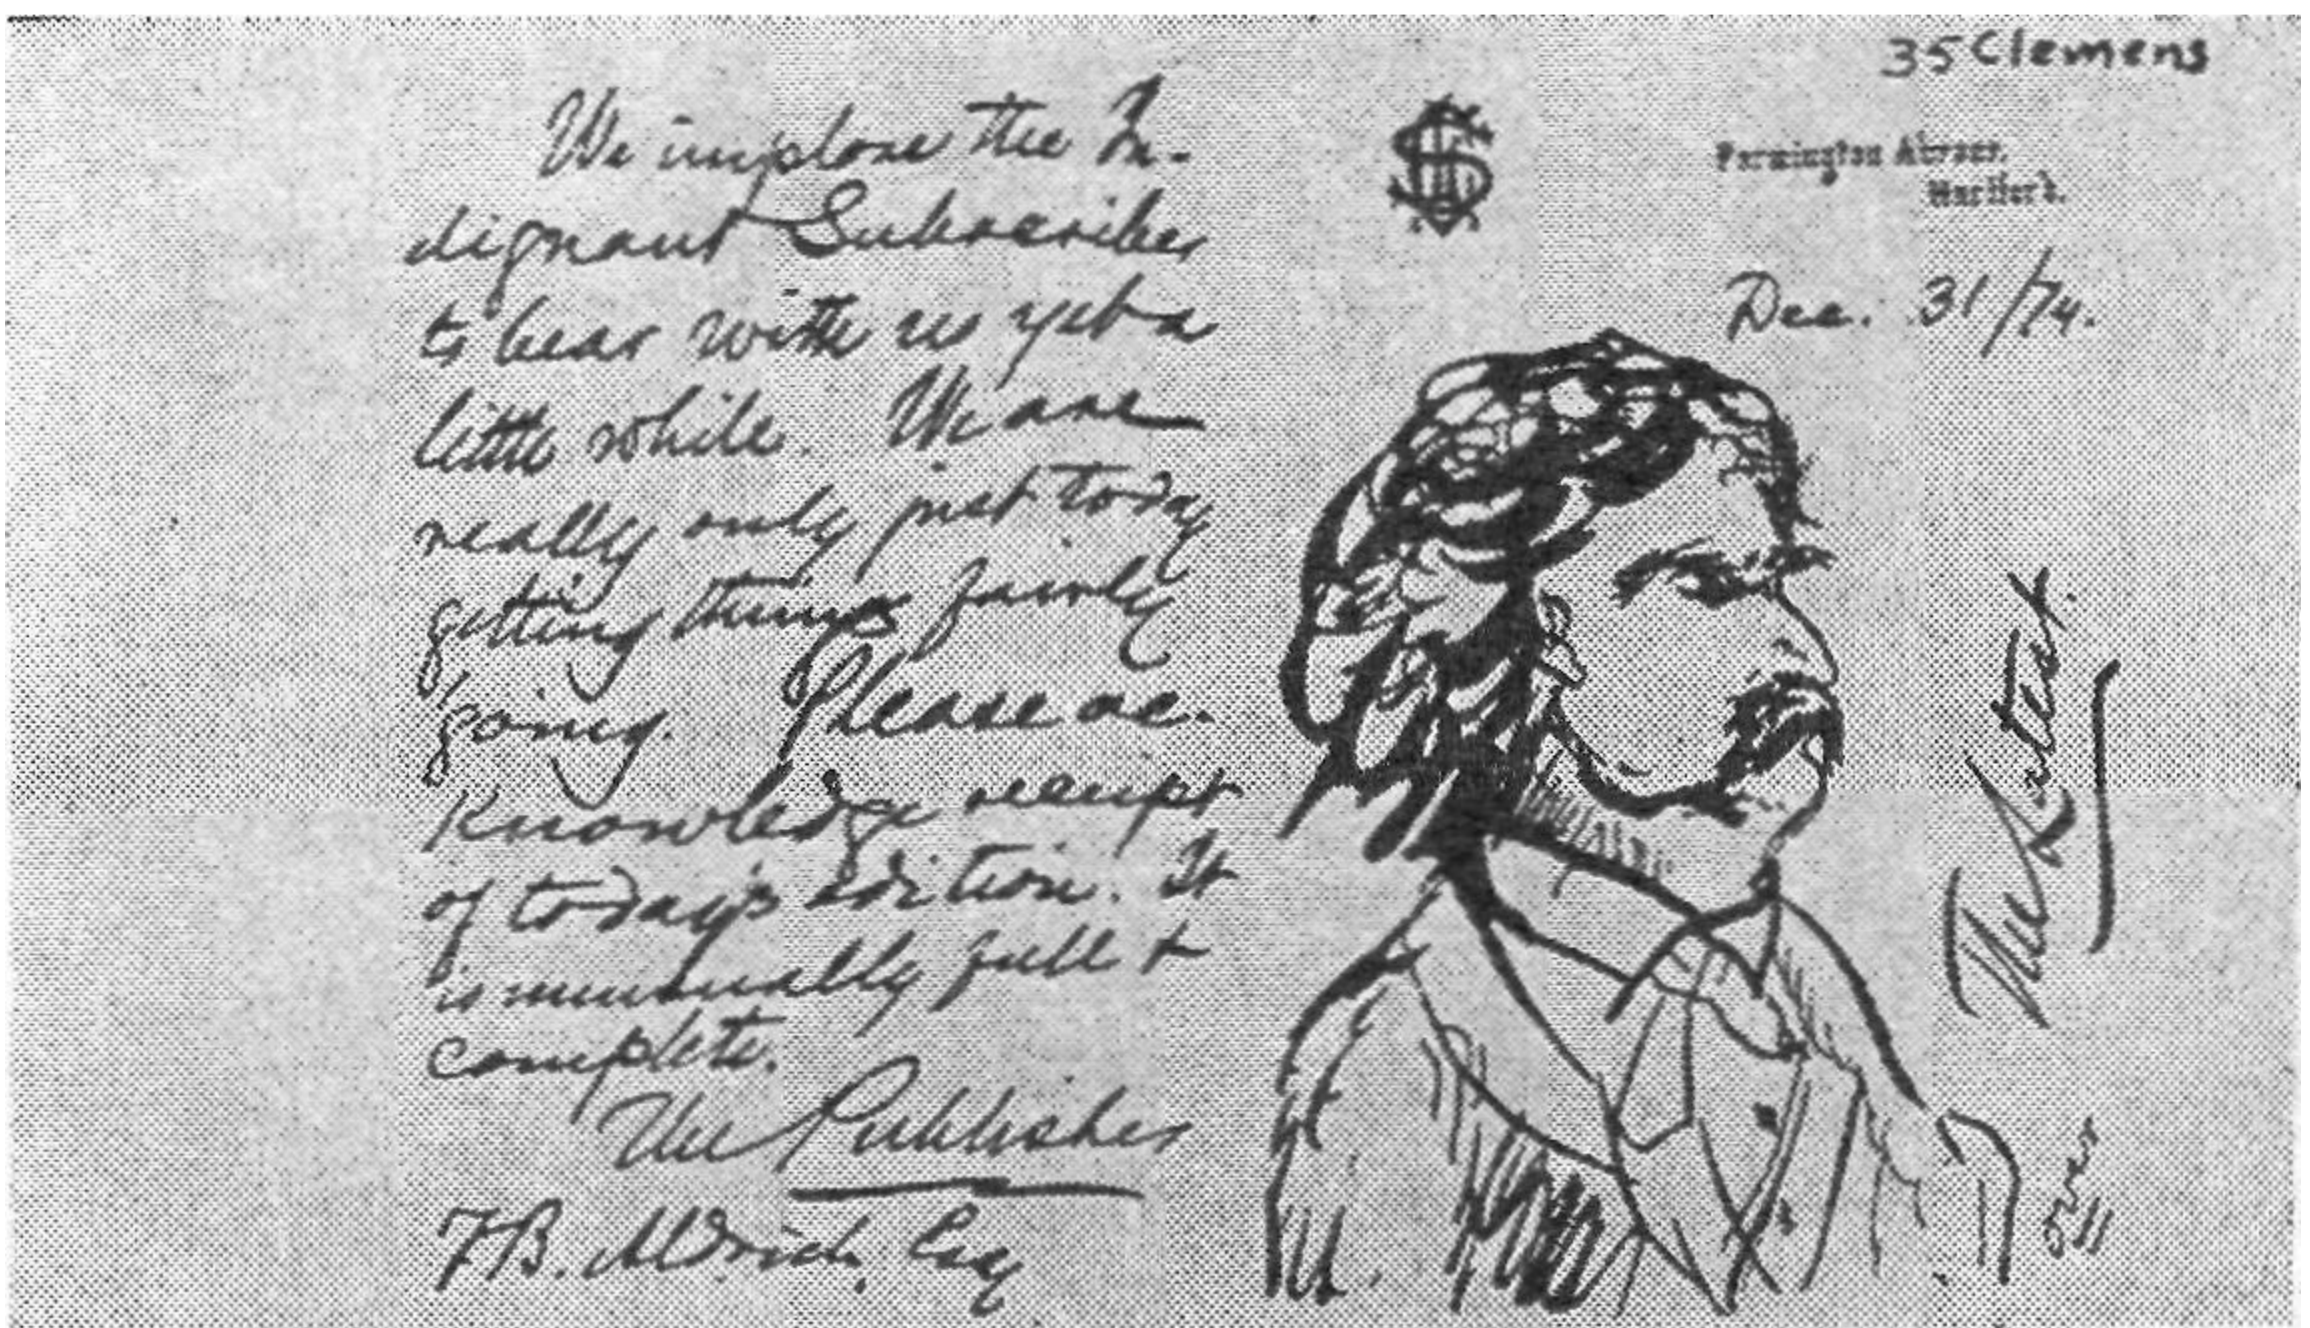 We implore the In-
dignant Subscriber
to bear with us yet a
little while. We are
really only just today
getting things fairly
going. Please ac-
knowledge receipt
of today's edition. It
is unusually full &
complete.
The Publisher
T.B. Aldrich, Esq
35 Clemens
Farmington Avenue,
Hartford.
Dec. 31/74.